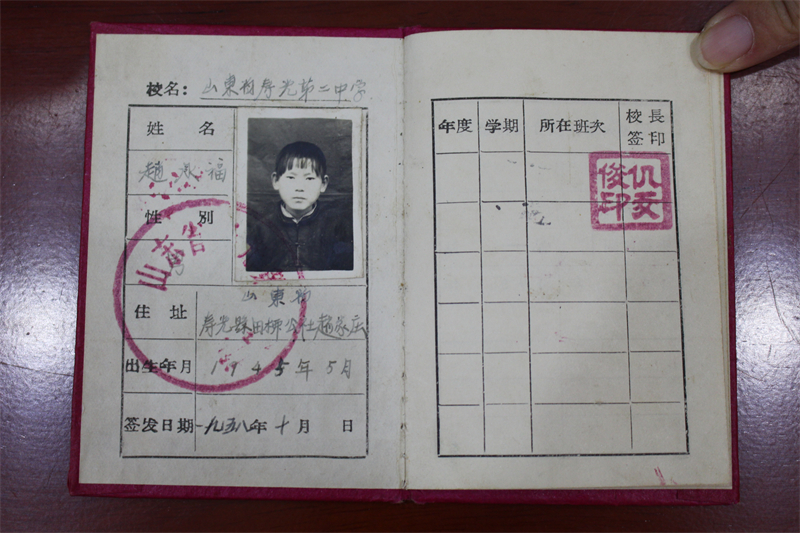 校名：山東省寿光第二中学
姓 名
趙 福
性 别
山東省
住 址
山東省
寿光縣田柳公社趙家庄
出生年月 1945年5月
签发日期 一九五八年十月 日
年度 学期 所在班次 校長签印
俊
印